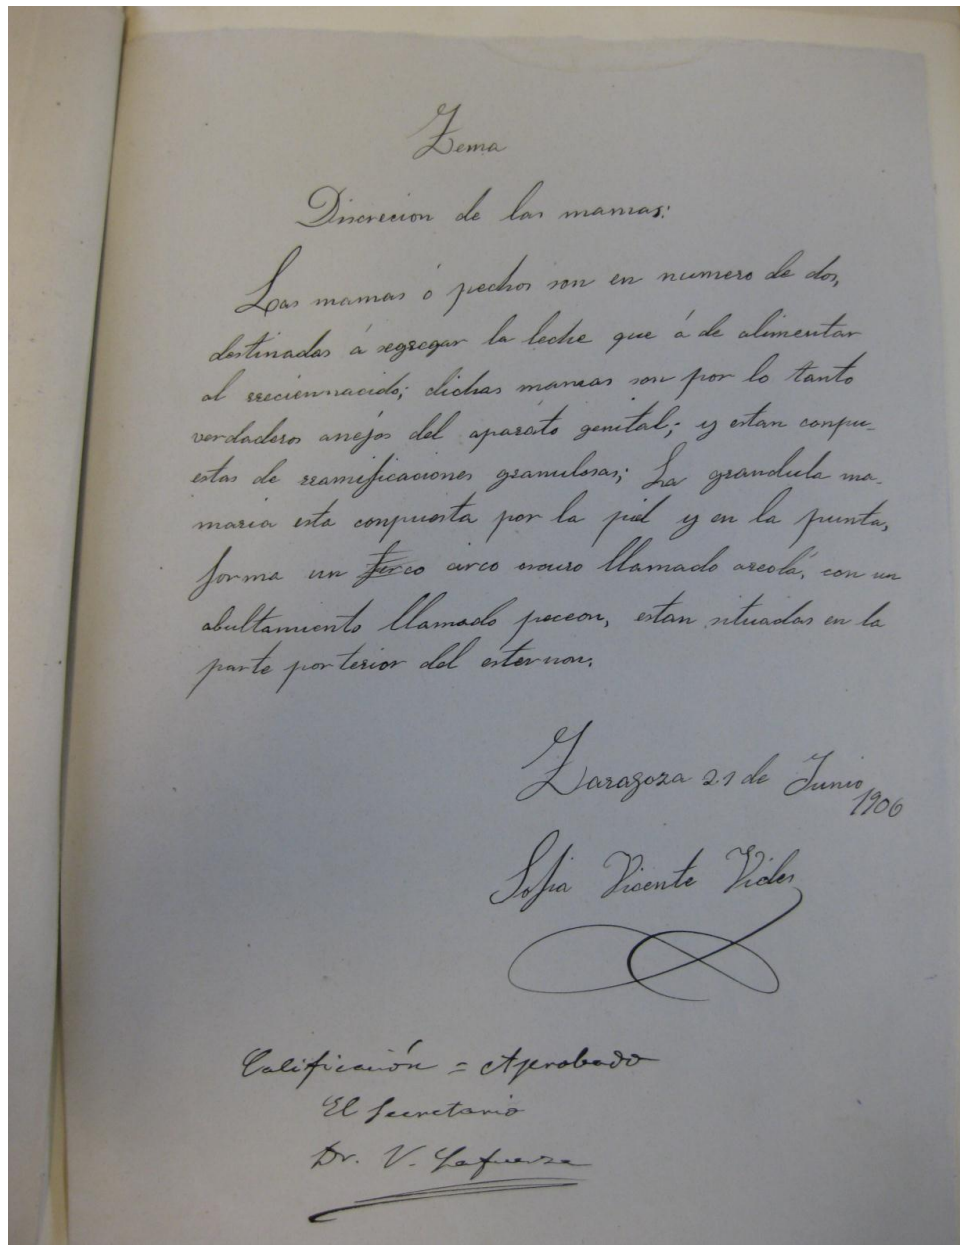 Tema
Discrecion de las mamas:
Las mamas ó pechos son en numero de dos,
destinadas á segregar la leche que á de alimentar
al rreciennacido; dichas mamas son por lo tanto
verdaderos anéjos del aparáto genital; y estan conpu-
estas de rramificaciones granulosas; La grandula ma-
maria esta conpuesta por la piel y en la punta,
forma un circo oscuro llamado areola, con un
abultamiento llamado peceon, estan situadas en la
parte porterior del esternon.
Zaragoza 21 de Junio
1906
Sofia Vicente
Calificación = Aprobado
El Secretario
Dr. V. Lafuerza